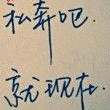 私奔吧.
就现在